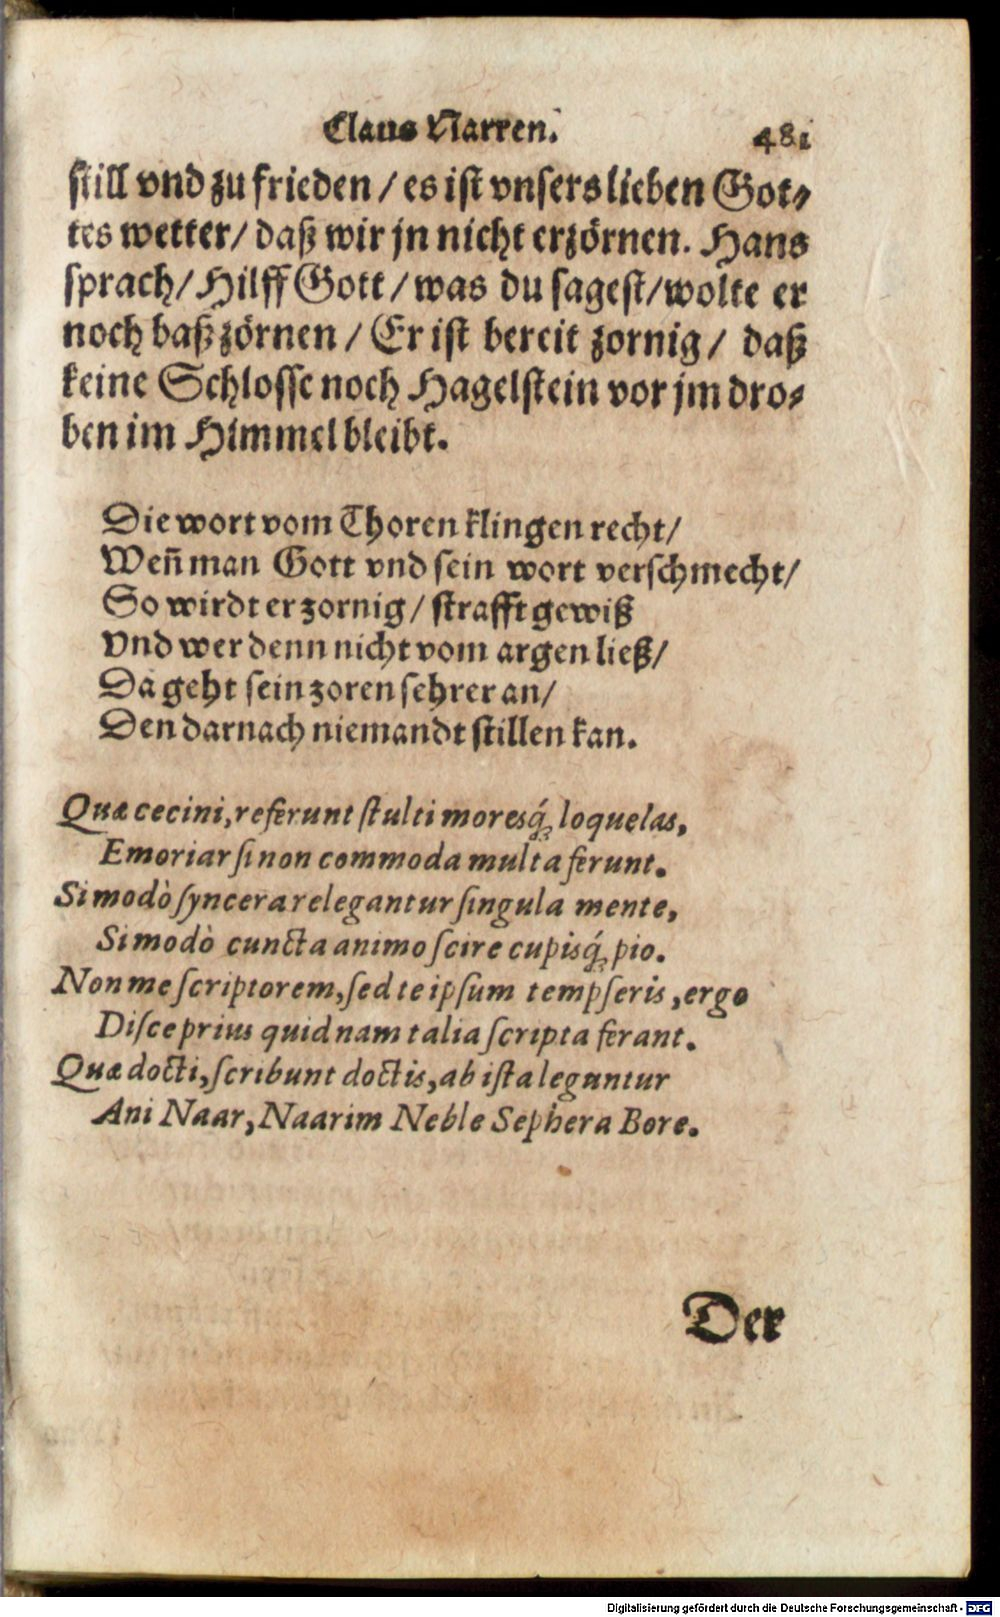 Claus Narren. 481
still vnd zu frieden / es ist vnsers lieben Got-
tes wetter / daß wir jn nicht erzörnen. Hans
sprach / Hilff Gott / was du sagest / wolte er
noch baß zörnen / Er ist bereit zornig / daß
keine Schlosse noch Hagelstein vor jm dro-
ben im Himmel bleibt.
Die wort vom Thoren klingen recht /
Weñ man Gott vnd sein wort verschmecht /
So wirdt er zornig / strafft gewiß
Vnd wer denn nicht vom argen ließ /
Da geht sein zoren sehrer an /
Den darnach niemandt stillen kan.
Quæ cecini, referunt stulti moresq́; loquelas,
Emoriar si non commoda multa ferunt.
Si modò syncera relegantur singula mente,
Si modò cuncta animo scire cupisq́; pio.
Non me scriptorem, sed te ipsum tempseris, ergo
Disce prius quidnam talia scripta ferant.
Quæ docti, scribunt doctis, ab ista leguntur
Ani Naar, Naarim Neble Sephera Bore.
Der
Digitalisierung gefördert durch die Deutsche Forschungsgemeinschaft - DFG